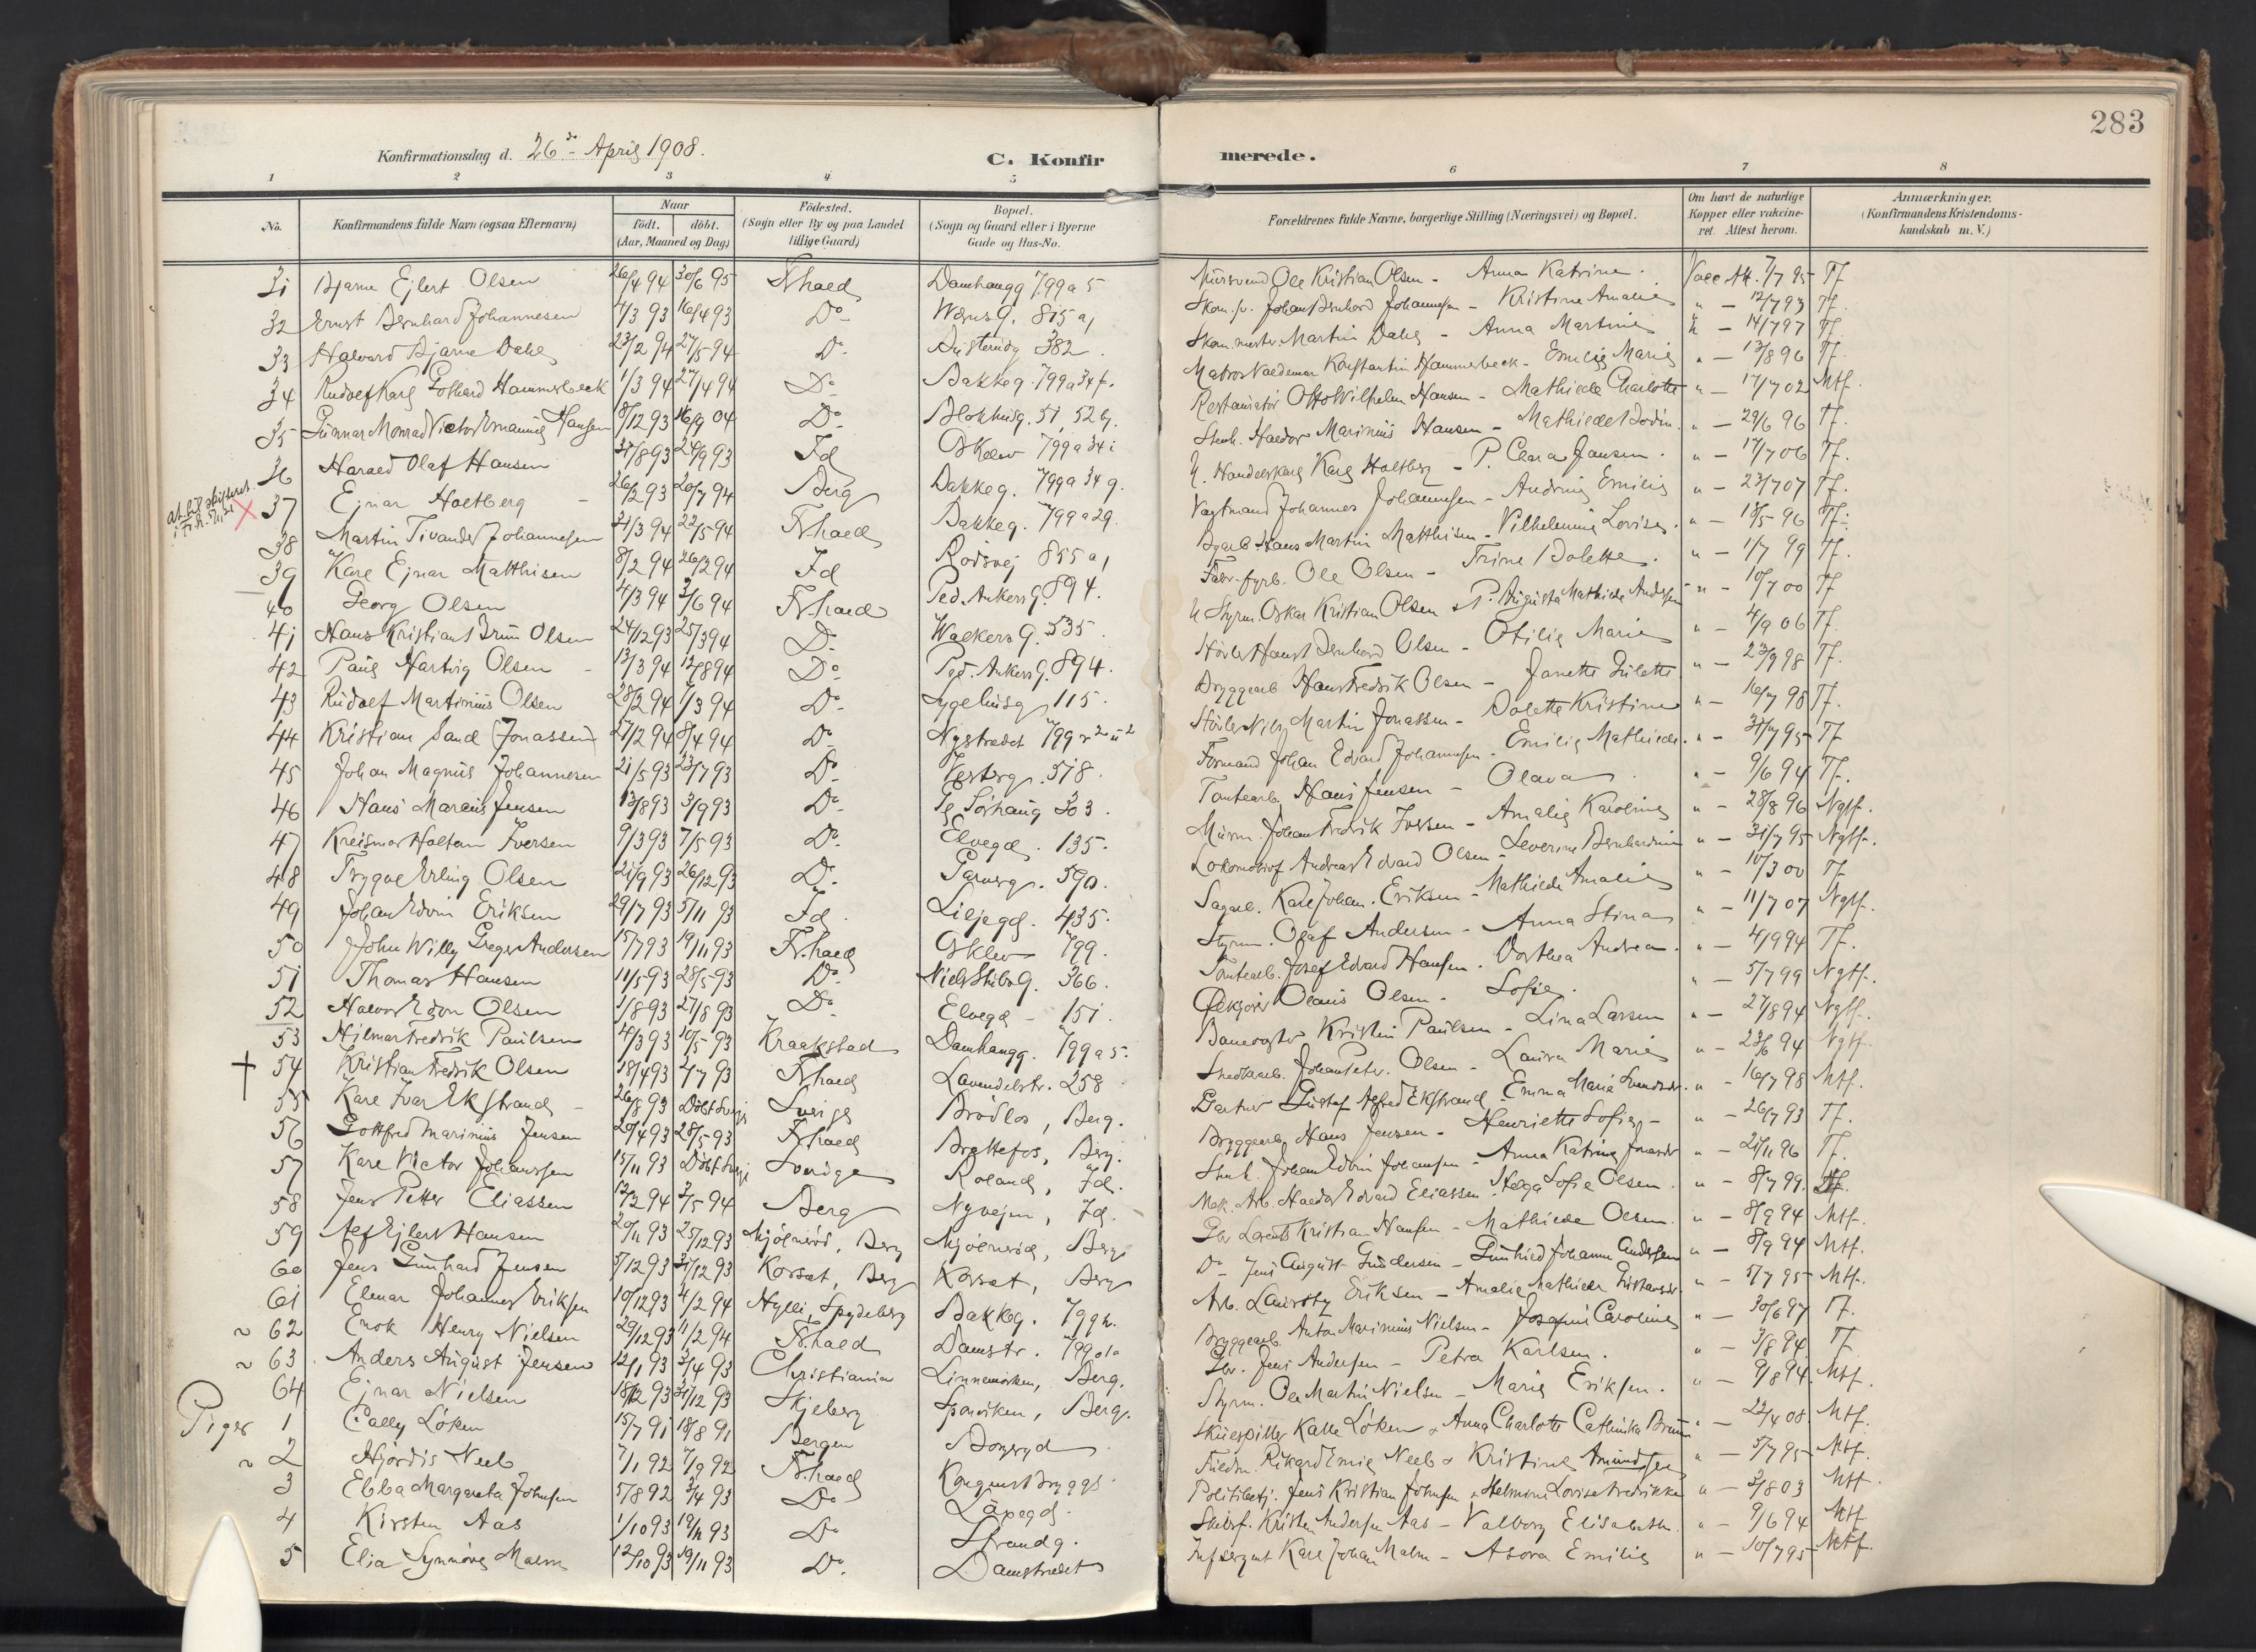 283
Konfirmationsdag d. 26de April 1908. C. Konfirmerede.
1 2 3 4 5 6 7 8
No. Konfirmandens fulde Navn (ogsaa Efternavn) Naar født. døbt. (Aar, Maaned og Dag) Fødested. (Sogn eller By og paa Landet tillige Gaard) Bopæl. (Sogn og Gaard eller i Byerne Gade og Hus-No. Forældrenes fulde Navne, borgerlige Stilling (Næringsvei) og Bopæl. Om havt de naturlige Kopper eller vakcineret. Attest herom. Anmærkninger. (Konfirmandens Kristendomskundskab m. V.)
31 Bjarne Ejlert Olsen 26/4 94 30/6 95 Fr.hald Damhaugg 799 a 5 Ole Kristian Olsen - Anna Katrine. Vacc. Att. 7/7 95 Tf
32 Ernst Bernhard Johannesen 4/3 93 16/4 93 Do Wærns G. 815 a, Johan Bernhard Johannesen - Kristine Amalie " - 12/7 93 Tf.
33 Halvard Bjarne Dahl 23/2 94 27/5 94 Do 382. Skom.mester Martin Dahl - Anna Martine " - 14/7 97 Tf
34 Rudolf Karl Gothard Hammerbeck 1/3 94 27/4 94 Do Bakkeg. 799 a 34 f. Matros Valdemar Konstantin Hammerbeck - Emilie Marie " - 13/8 96 Tf.
35 Gunnar Monrad Victor Emanuel Hansen 18/12 93 16/9 04 Do Blokhusg. 51, 52 b. Restauratør Otto Wilhelm Hansen - Mathilde Charlotte " - 17/7 02 Mtf.
36 Harald Olaf Hansen 31/8 93 24/9 93 Id Oskleiv 799 a 34 i Haldor Marinius Hansen - Mathilde Bodin. " - 29/6 96 Tf.
37 Ejnar Holtberg - 26/2 93 20/7 94 Berg Bakkeg. 799 a 34 g. U. Handelskarl Karl Holtberg - P. Clara Jansen. " - 17/7 06 Tf.
38 Martin Tivander Johannesen 31/3 94 22/5 94 Fr.hald Bakkeg. 799 a 29. Vagtmand Johannes Johannesen - Andrine Emilie " - 23/7 07 Tf.
39 Karl Ejnar Matthisen 8/2 94 26/2 94 Id Rødsvej 855 a, Hans Martin Matthisen - Vilhelmine Lovise. " - 18/5 96 Tf.
40 Georg Olsen 4/3 94 3/6 94 Fr.hald Ped. Ankers G. 894. Fabr. fyrb. Ole Olsen - Trine Bolette. " - 1/7 99 Tf.
41 Hans Kristian Brun Olsen 24/12 93 25/3 94 Do Walkers G. 535. U Styrm. Oskar Kristian Olsen & P. Augusta Mathilde Andersen " - 10/7 00 Tf
42 Paul Hartvig Olsen - 13/3 94 12/8 94 Do Ped. Ankers G. 894. Bernhard Olsen - Otilie Marie " - 4/9 06 Tf.
43 Rudolf Martinius Olsen 28/2 94 7/3 94 Do Sygehusg 115. Bryggearb Hans Fredrik Olsen - Janette Julette. " - 23/9 98 Tf.
44 Kristian Sand (Jonassen) 27/2 94 8/4 94 Do Nystrædet 799 Martin Jonassen - Bolette Kristine " - 16/7 98 Tf.
45 Johan Magnus Johannesen 21/5 93 23/7 93 Do Vesterg. 578. Formand Johan Edvard Johannesen - Emilie Mathilde. " - 31/7 95 Tf
46 Hans Marcus Jensen 13/8 93 3/9 93 Do Sørhaug 303. Tomtearb. Hans Jensen - Olava. " - 9/6 94 Tf.
47 Holtan Iversen 9/3 93 7/5 93 Do Elvegd. 135. Murm. Johan Fredrik Iversen - Amalie Karoline " - 28/8 96 Ngtf.
48 Trygve Erling Olsen 21/9 93 26/12 93 Do 590. Andreas Edvard Olsen - Severine Bernhardine " - 31/7 95 Ngtf.
49 Johan Edvin Eriksen 29/7 93 5/11 93 Id. Liljegd. 435. Karl Johan. Eriksen - Mathilde Amalie " - 10/3 00 Tf
50 John Willy Greger Andersen 15/7 93 19/11 93 Fr.hald Oskleiv 799. Styrm. Olaf Andersen - Anna Stina " - 11/7 07 Ngtf.
51 Thomas Hansen 11/5 93 28/5 93 Do Niels Stibs G. 366. Tomtearb. Josef Edvard Hansen. Dorthea Andrea. " - 4/9 94 Tf.
52 Halvor Edon Olsen 1/8 93 27/8 93 Do Elvegd - 151. Ølkjører Olaus Olsen - Sofie. " - 5/7 99 Ngtf.
53 Hjelmar Fredrik Paulsen 4/3 93 10/5 93 Kraakstad Damhaugg. 799 a 5. Banevogter Kristin Paulsen - Lina Larsen " - 27/8 94 Ngtf.
54 Kristian Fredrik Olsen 18/4 93 2/7 93 Fr.hald Lavendelstr. 258 Johan Peter. Olsen - Laura Marie " - 23/6 94 Ngtf.
55 Karl Ivar Ekstrand - 26/8 93 Døbt Sverige Sverige Brødløs, Berg. Gartner Gustaf Alfred Ekstrand - Emma Maria Svendsdr. " - 16/7 98 Mtf.
56 Gottfred Marinius Jensen 20/4 93 28/5 93 Fr.hald Brattefos, Berg. Bryggearb Hans Jensen - Henriette Sofie - " - 26/7 93 Tf.
57 Karl Victor Johansen 15/11 93 Døbt Sverige Sverige Roland, Id. Stenh. Johan Edvin Johansen - Anna Katrine " - 21/11 96 Tf.
58 Jens Petter Eliassen 12/2 94 3/5 94 Berg Nyvejen, Id. Mek. Arb. Haldor Edvard Eliassen. Helga Sofie Olsen. " - 8/7 99. Tf.
59 Alf Ejlert Hansen 20/11 93 25/12 93 Mjølnerød, Berg Mjølnerød, Berg. Gbr Lorents Kristian Hansen - Mathilde Olsen. " - 8/9 94 Mtf.
60 Jens Gunhard Jensen 5/12 93 31/12 93 Korsæt, Berg Korsæt, Berg Do Jens August Gundersen - Gunhild Johanne Andersen " - 8/9 94 Mtf.
61 Elmar Johannes Eriksen 10/12 93 4/2 94 Hylli, Spydeberg Bakkeg. 799 h. Arb. Lauritz Eriksen - Amalie Mathilde Gustavsdr. " - 5/7 95 Mtf.
~ 62 Enok Henry Nielsen 29/12 93 11/2 94 Fr.hald Damstr. 799 Bryggearb Anton Marinius Nielsen - Josefine Caroline " - 30/6 97 Tf.
~ 63 Anders August Jensen 12/1 93 3/4 93 Christiania Linnemarken, Berg. Gbr. Jens Andersen - Petra Karlsen. " - 3/8 94 Tf
64 Ejnar Nielsen 18/12 93 31/12 93 Skjeberg Sponviken, Berg. Styrm. Ole Martin Nielsen - Marie Eriksen. " - 9/8 94. Mtf.
Piger 1 Cally Løken 15/7 91 18/8 91 Bergen Skuespiller Kalle Løken & Anna Charlotte Cathinka Bruun " - 22/4 08. Mtf.
~ 2 Hjørdis Neeb 7/1 92 7/9 92 Fr.hald Kongens Brygge. Rikard Emil Neeb & Kristine Amundsen " - 5/7 95 Mtf.
3 Ebba Margareta Johnsen 5/8 92 3/4 93 Do Politibetj. Jens Kristian Johnsen & Helmine Lovise Fredrikke " - 3/8 03 Mtf.
4 Kirsten Aas 1/10 93 19/11 93 Do Strandg. Skibsf. Kristen Andersen Aas - Valborg Elisabeth. " - 9/6 94 Mtf.
5 Elia Synnøve Malm 12/10 93 19/11 93 Do Damstrædet Karl Johan Malm - Asora Emilie " - 10/7 95 Mtf.